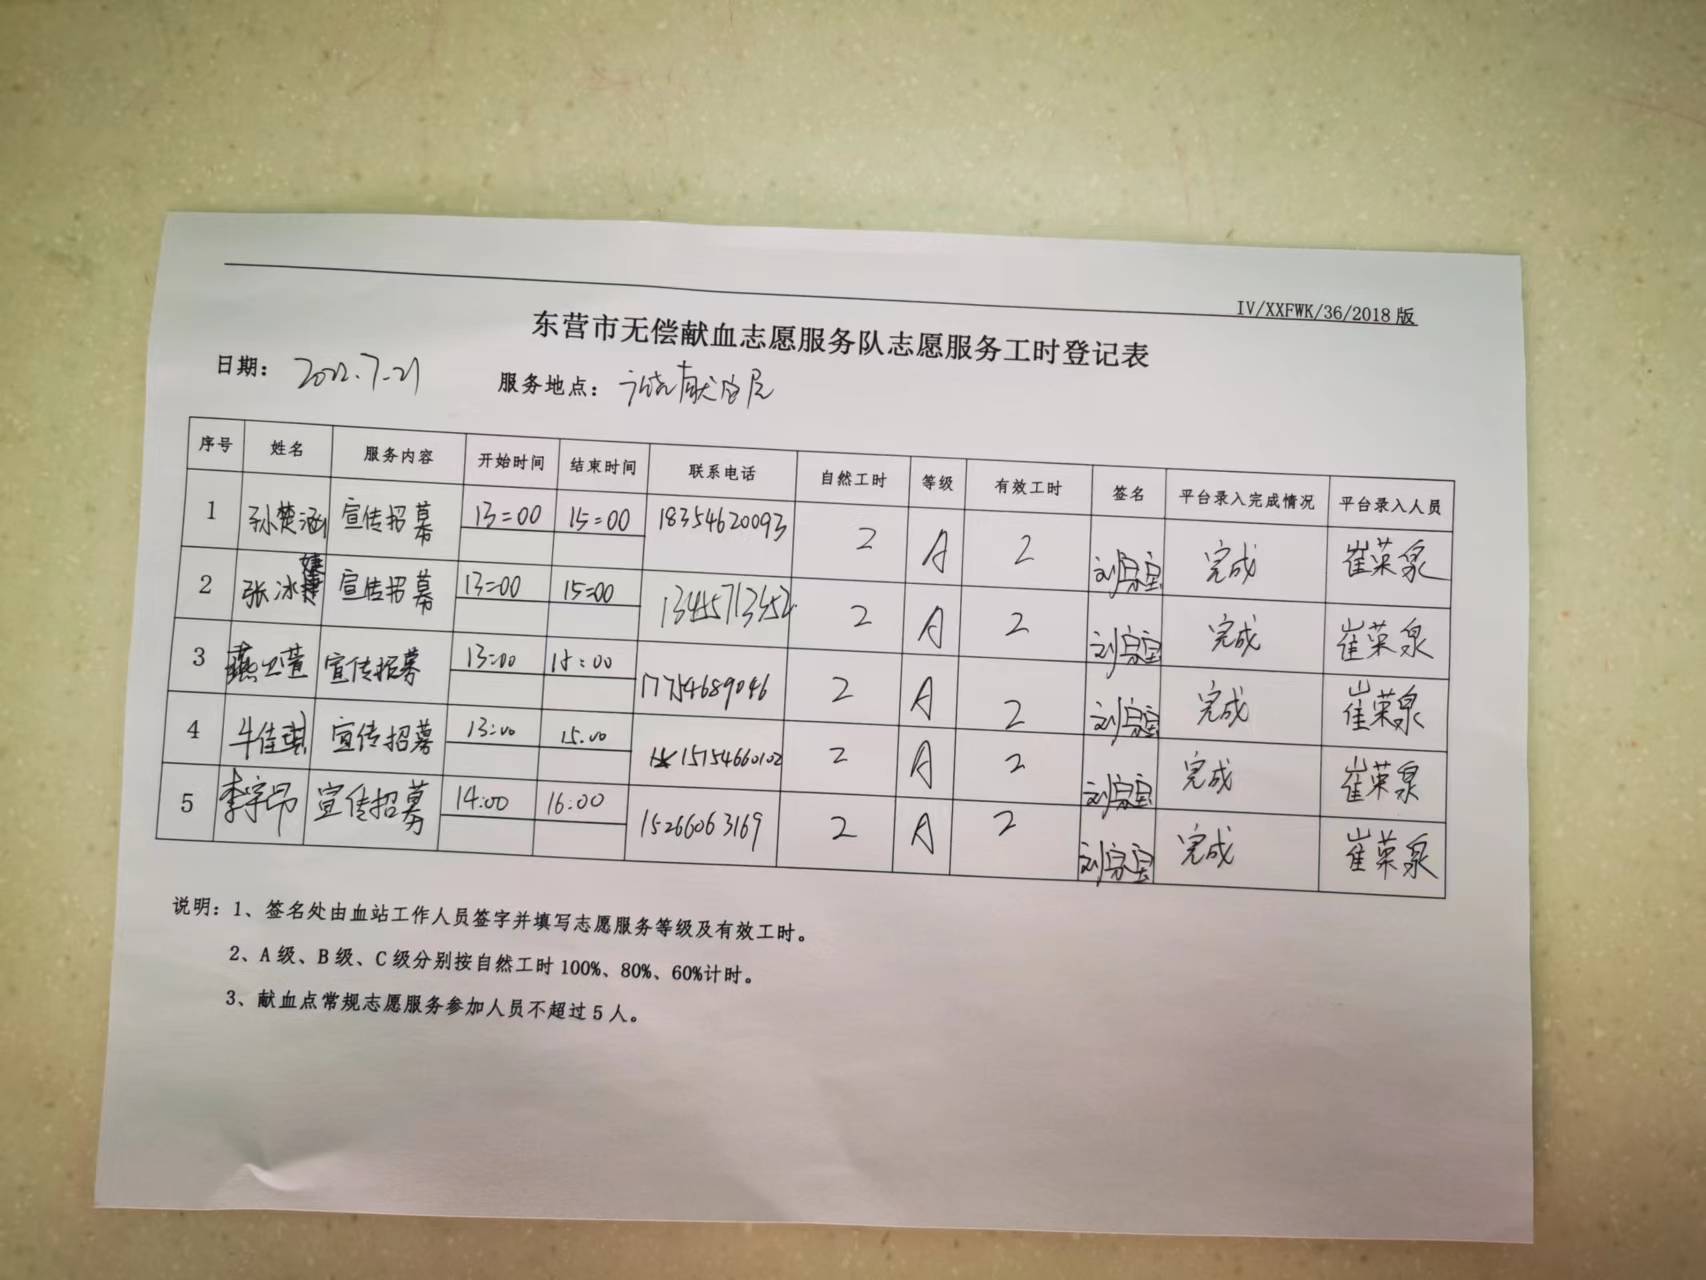 IV/XXFWK/36/2018版
东营市无偿献血志愿服务队志愿服务工时登记表
日期: 2022.7.21 服务地点: 献血屋
序号 姓名 服务内容 开始时间 结束时间 联系电话 自然工时 等级 有效工时 签名 平台录入完成情况 平台录入人员
1 孙楚涵 宣传招募 13:00 15:00 18354620093 2 A 2 完成 崔荣泉
2 张冰婕 宣传招募 13:00 15:00 13455713452 2 A 2 完成 崔荣泉
3 宣传招募 13:00 15:00 17754689046 2 A 2 完成 崔荣泉
4 牛佳琪 宣传招募 13:00 15:00 15154660102 2 A 2 完成 崔荣泉
5 李宇昂 宣传招募 14:00 16:00 15266063169 2 A 2 完成 崔荣泉
说明:1、签名处由血站工作人员签字并填写志愿服务等级及有效工时。
2、A级、B级、C级分别按自然工时100%、80%、60%计时。
3、献血点常规志愿服务参加人员不超过5人。